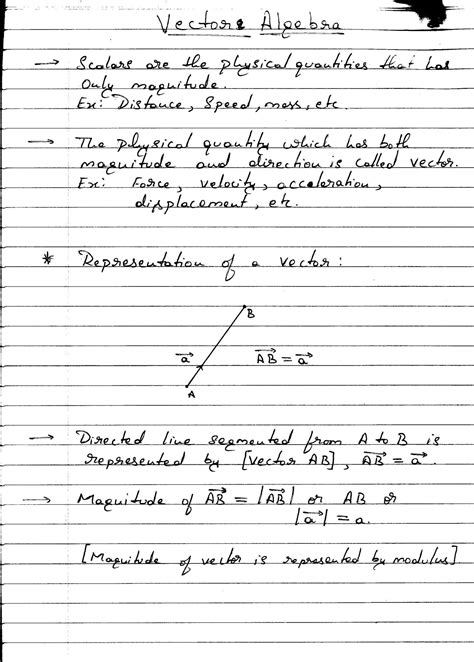 Vectors Algebra
→ Scalars are the physical quantities that has
only magnitude.
Ex: Distance, Speed, mass, etc.
→ The physical quantity which has both
magnitude and direction is called vector.
Ex: Force, velocity, acceleration,
displacement, etc.
* Representation of a vector:
B
a⃗
A⃗B⃗ = a⃗
A
→ Directed line segmented from A to B is
represented by [vector AB], A⃗B⃗ = a⃗.
→ Magnitude of A⃗B⃗ = |A⃗B⃗| or AB or
|a⃗| = a.
[Magnitude of vector is represented by modulus]